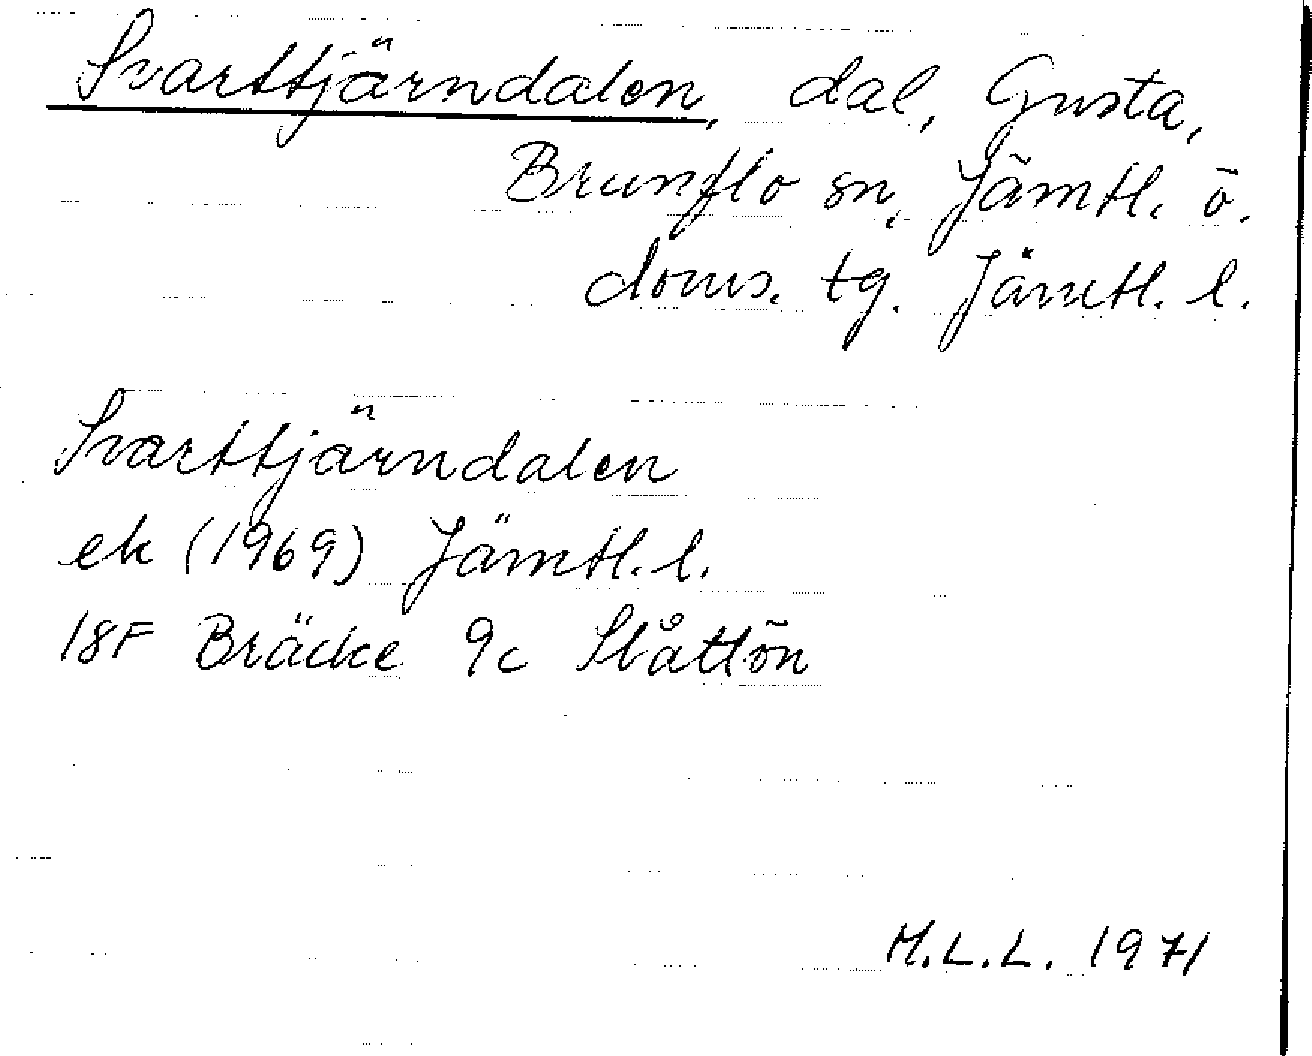 Svarttjärndalen, dal, Gusta,
Brunflo sn, Jämtl. ö.
doms. tg. Jämtl. l.
Svarttjärndalen
ek (1969) Jämtl. l.
18F Bräcke 9c Slåttön
M.L.L. 1971